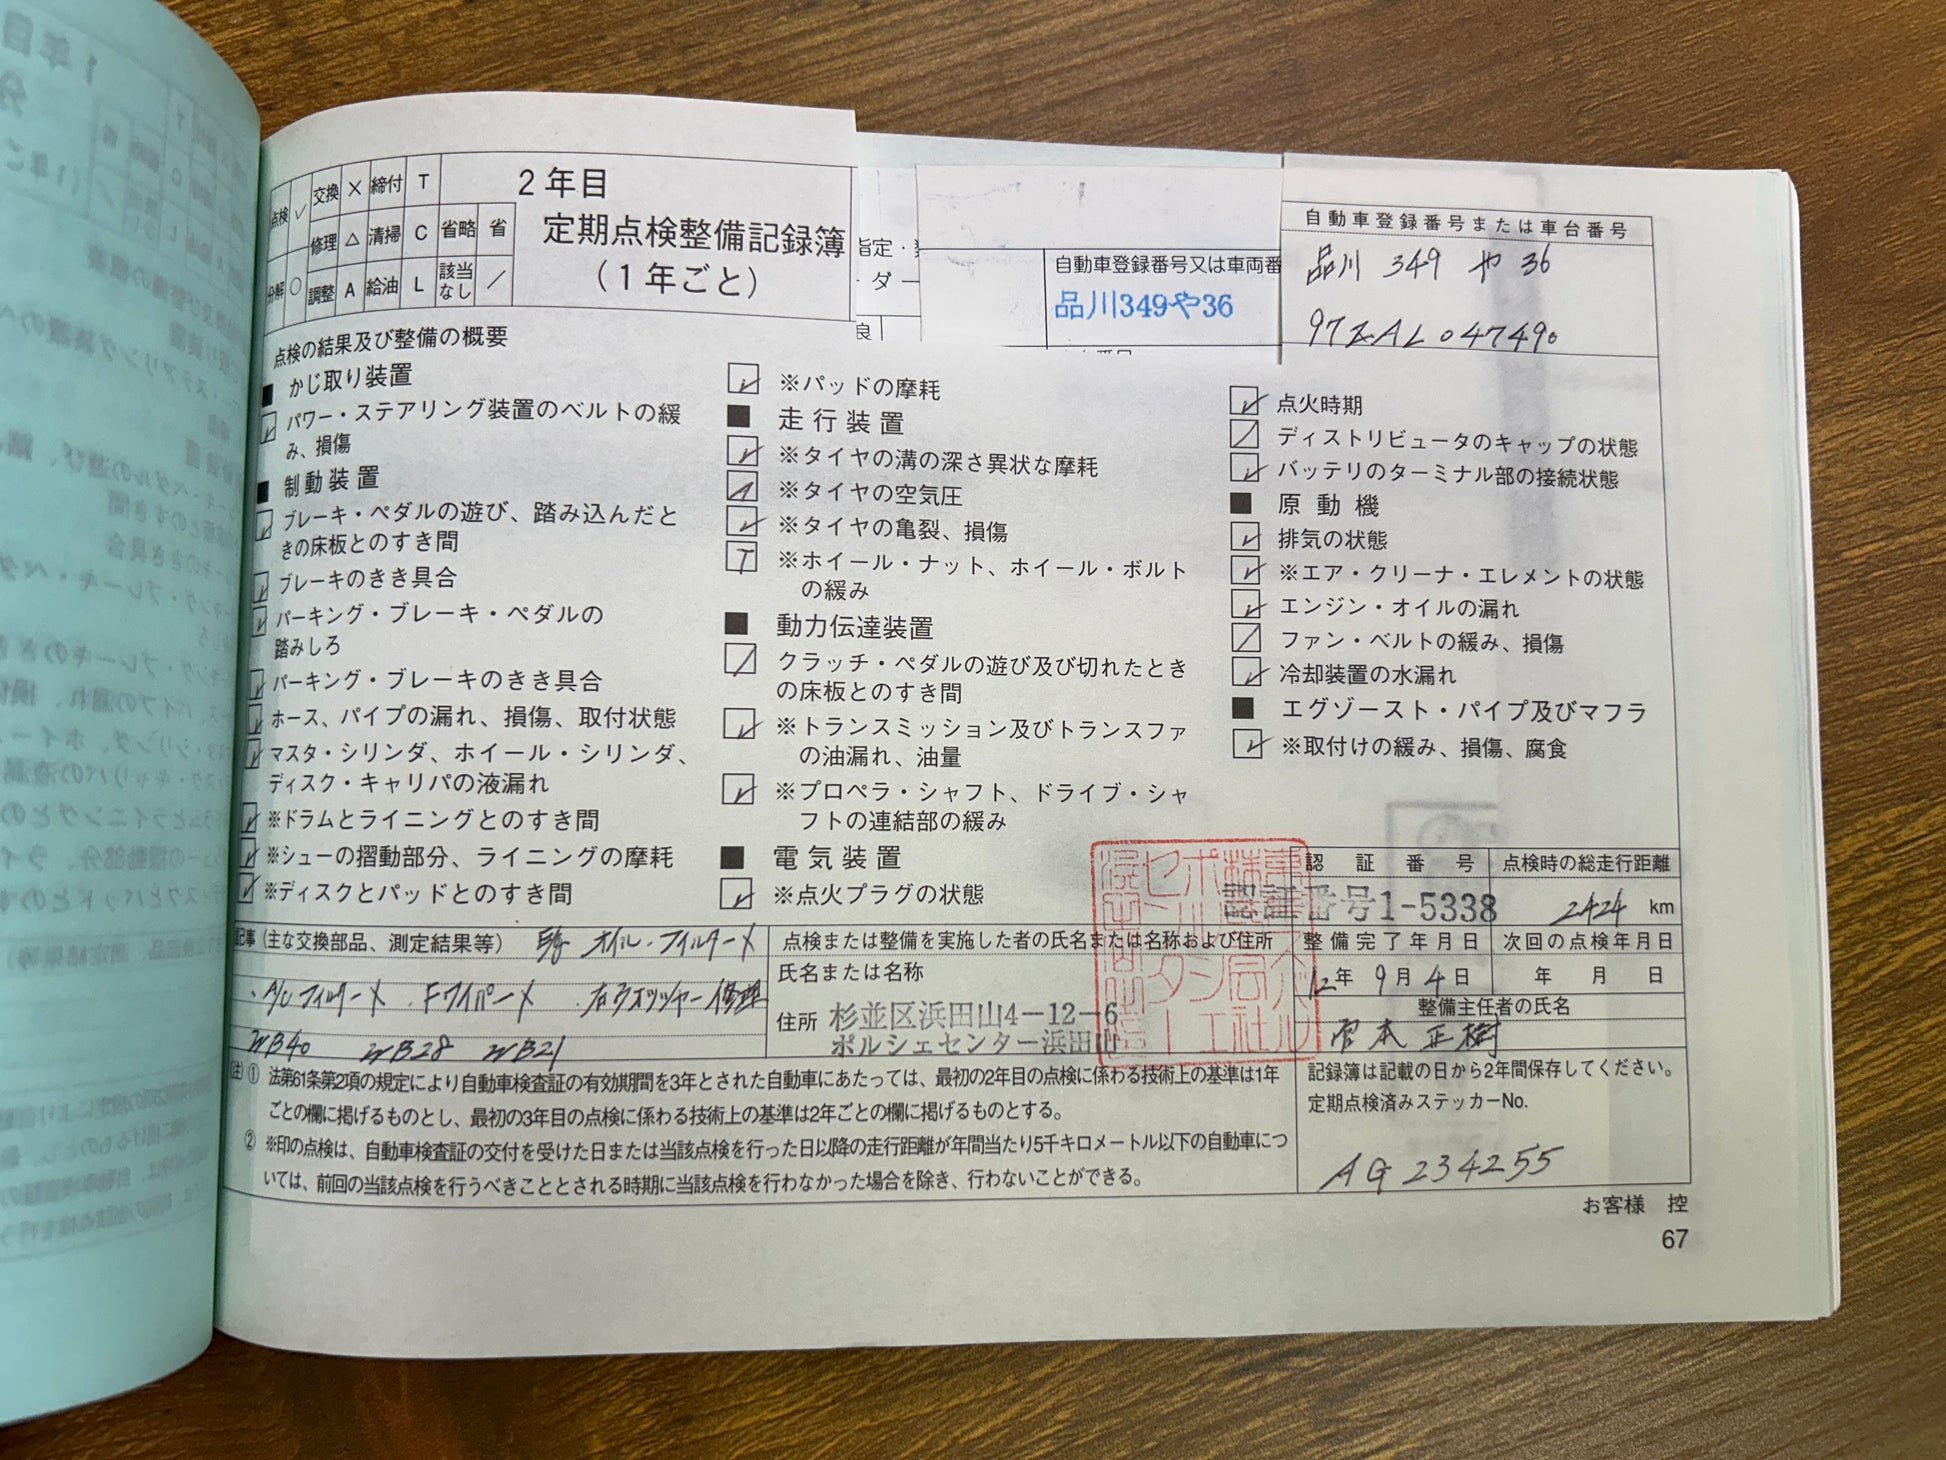 点検 ✓ 交換 × 締付 T
修理 △ 清掃 C 省略 省
分解 ○ 調整 A 給油 L 該当なし ／
2年目
定期点検整備記録簿
（1年ごと）
自動車登録番号又は車両番
品川349や36
自動車登録番号または車台番号
品川 349 や 36
点検の結果及び整備の概要
■ かじ取り装置
パワー・ステアリング装置のベルトの緩
み、損傷
■ 制動装置
ブレーキ・ペダルの遊び、踏み込んだと
きの床板とのすき間
ブレーキのきき具合
パーキング・ブレーキ・ペダルの
踏みしろ
パーキング・ブレーキのきき具合
ホース、パイプの漏れ、損傷、取付状態
マスタ・シリンダ、ホイール・シリンダ、
ディスク・キャリパの液漏れ
※ドラムとライニングとのすき間
※シューの摺動部分、ライニングの摩耗
※ディスクとパッドとのすき間
※パッドの摩耗
■ 走行装置
※タイヤの溝の深さ異状な摩耗
※タイヤの空気圧
※タイヤの亀裂、損傷
T ※ホイール・ナット、ホイール・ボルト
の緩み
■ 動力伝達装置
クラッチ・ペダルの遊び及び切れたとき
の床板とのすき間
※トランスミッション及びトランスファ
の油漏れ、油量
※プロペラ・シャフト、ドライブ・シャ
フトの連結部の緩み
■ 電気装置
※点火プラグの状態
点火時期
ディストリビュータのキャップの状態
バッテリのターミナル部の接続状態
■ 原動機
排気の状態
※エア・クリーナ・エレメントの状態
エンジン・オイルの漏れ
ファン・ベルトの緩み、損傷
冷却装置の水漏れ
■ エグゾースト・パイプ及びマフラ
※取付けの緩み、損傷、腐食
記事（主な交換部品、測定結果等） オイル・フィルター〆
・A/Cフィルター〆 ・Fワイパー〆 ・右ウォッシャー修理
WB40 WB28 WB21
点検または整備を実施した者の氏名または名称および住所
氏名または名称
住所 杉並区浜田山4-12-6
ポルシェセンター浜田山
認証番号
認証番号1-5338
点検時の総走行距離
2424 km
整備完了年月日
12年 9月 4日
次回の点検年月日
年 月 日
整備主任者の氏名
本 正樹
（注）① 法第61条第2項の規定により自動車検査証の有効期間を3年とされた自動車にあたっては、最初の2年目の点検に係わる技術上の基準は1年
ごとの欄に掲げるものとし、最初の3年目の点検に係わる技術上の基準は2年ごとの欄に掲げるものとする。
② ※印の点検は、自動車検査証の交付を受けた日または当該点検を行った日以降の走行距離が年間当たり5千キロメートル以下の自動車につ
いては、前回の当該点検を行うべきこととされる時期に当該点検を行わなかった場合を除き、行わないことができる。
記録簿は記載の日から2年間保存してください。
定期点検済みステッカーNo.
AG 234255
お客様 控
67